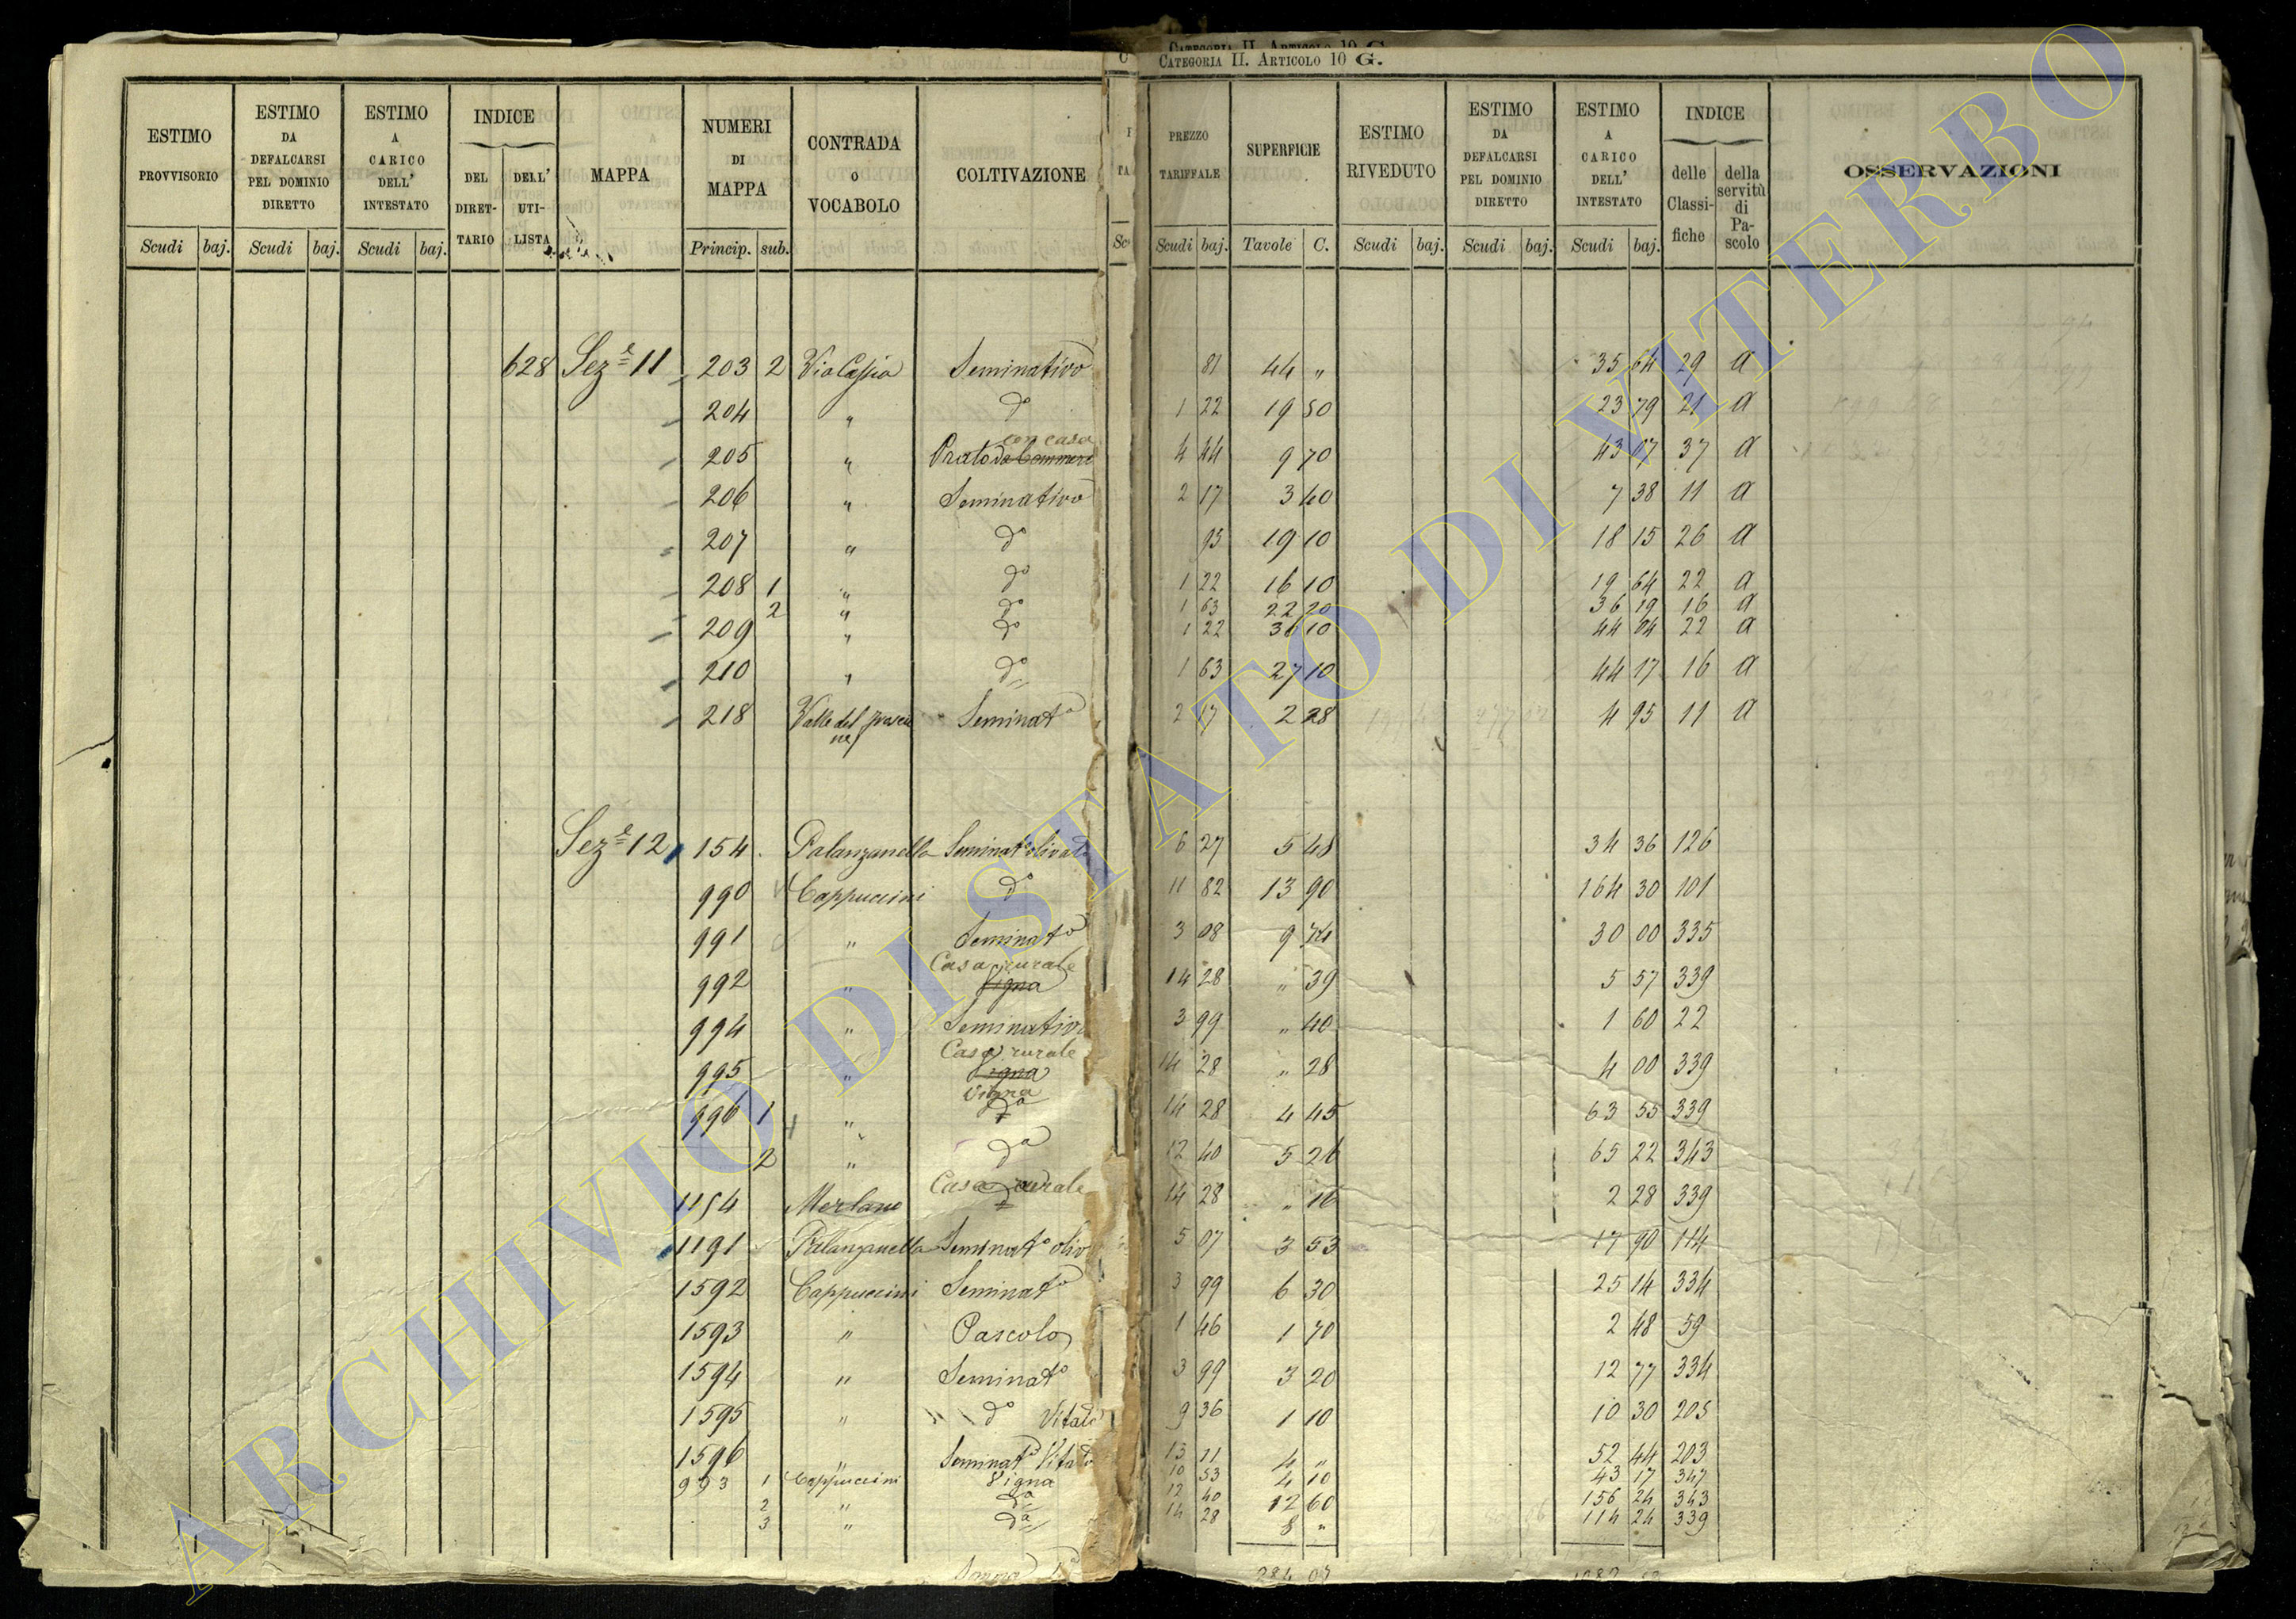 CATEGORIA II. ARTICOLO 10 G.
CATEGORIA II. ARTICOLO 10 G.
ESTIMO PROVVISORIO Scudi baj.
ESTIMO DA DEFALCARSI PEL DOMINIO DIRETTO Scudi baj.
ESTIMO A CARICO DELL' INTESTATO Scudi baj.
INDICE DEL DIRET-TARIO DELL' UTI-LISTA
MAPPA
NUMERI DI MAPPA Princip. sub.
CONTRADA O VOCABOLO
COLTIVAZIONE
PREZZO TARIFFALE Scudi baj.
SUPERFICIE Tavole C.
ESTIMO RIVEDUTO Scudi baj.
ESTIMO DA DEFALCARSI PEL DOMINIO DIRETTO Scudi baj.
ESTIMO A CARICO DELL' INTESTATO Scudi baj.
INDICE delle Classi-fiche della servitù di Pa-scolo
OSSERVAZIONI
628 Seze 11 203 2 Via Cassia Seminativo 81 44 " 35 64 29 a
204 " do 1 22 19 50 23 79 21 a
con casa
205 " Prato 4 44 9 70 43 07 37 a
206 " Seminativo 2 17 3 40 7 38 11 a
207 " do 95 19 10 18 15 26 a
208 1 " do 1 22 16 10 19 64 22 a
2 " do 1 63 22 20 36 19 16 a
209 " do 1 22 36 10 44 04 22 a
210 " do 1 63 27 10 44 17 16 a
218 Valle del Seminato 2 17 2 28 4 95 11 a
Seze 12 154 Palanzanella Seminat olivato 6 27 5 48 34 36 126
990 Cappuccini do 11 82 13 90 164 30 101
991 " Seminato 3 08 9 74 30 00 335
Casa rurale
992 " Vigna 14 28 " 39 5 57 339
994 " Seminativo 3 99 " 40 1 60 22
Casa rurale
995 " Vigna 14 28 " 28 4 00 339
Vigna
996 1 " do 14 28 4 45 63 55 339
2 " da 12 40 5 26 65 22 343
1154 Merlano Casa rurale 14 28 " 16 2 28 339
1191 Palanzanella Seminato oliv 5 07 3 53 17 90 114
1592 Cappuccini Seminato 3 99 6 30 25 14 334
1593 " Pascolo 1 46 1 70 2 48 59
1594 " Seminato 3 99 3 20 12 77 334
1595 " do Vitato 9 36 1 10 10 30 205
1596 " Seminato Vitato 13 11 4 " 52 44 203
993 1 Cappuccini Vigna 10 53 4 10 43 17 347
2 " da 12 40 12 60 156 24 343
3 " da 14 28 8 " 114 24 339
ARCHIVIO DI STATO DI VITERBO